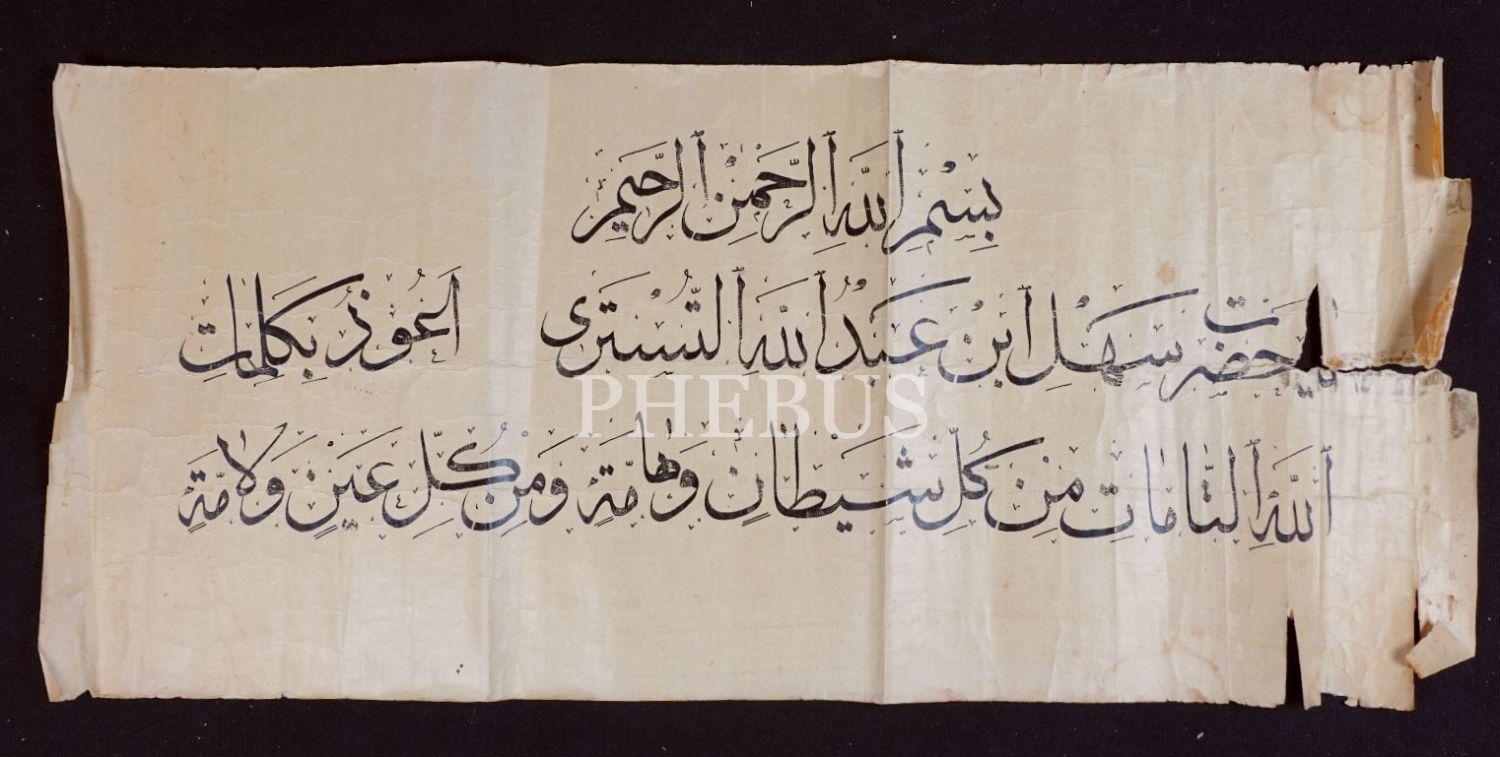 بِسْمِ ٱللَّهِ ٱلرَّحْمٰنِ ٱلرَّحِيمِ
حضرت سَهْلِ ٱبْنِ عَبْدُ ٱللَّه ٱلتُّسْتَرِى اَعُوذُ بِكَلِمَاتِ
ٱللَّهِ ٱلتَّامَاتِ مِنْ كُلِّ شَيْطَانٍ وَهَامَّةٍ وَمِنْ كُلِّ عَيْنٍ وَلَامَّةٍ
PHEBUS